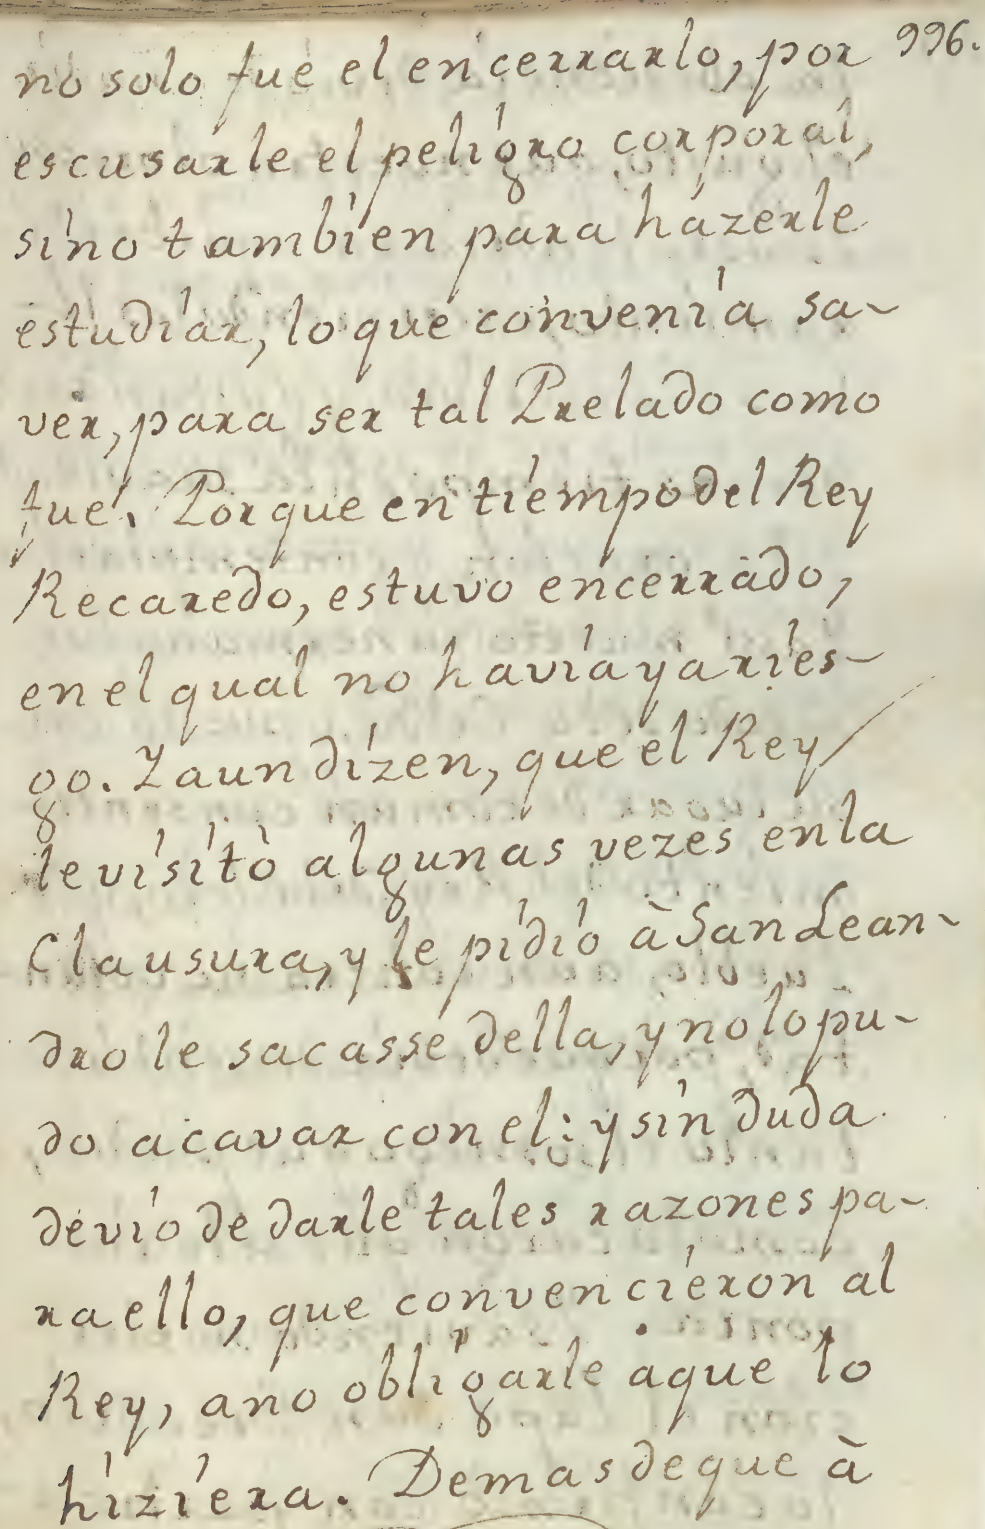 996.
no solo fue el encerrarlo, por
escusarle el peligro corporal,
sino tambien para hazerle
estudiar, lo que convenia sa-
ver, para ser tal Prelado como
fue. Porque en tiempo del Rey
Recaredo, estuvo encerrado,
en el qual no havia ya ries-
go. Y aun dizen, que el Rey
le visitò algunas vezes en la
Clausura, y le pidio à San Lean-
dro le sacasse della, y no lo pu-
do acavar con el: y sin duda
devio de darle tales razones pa-
ra ello, que convencieron al
Rey, a no obligarle a que lo
hiziera. Demas de que à